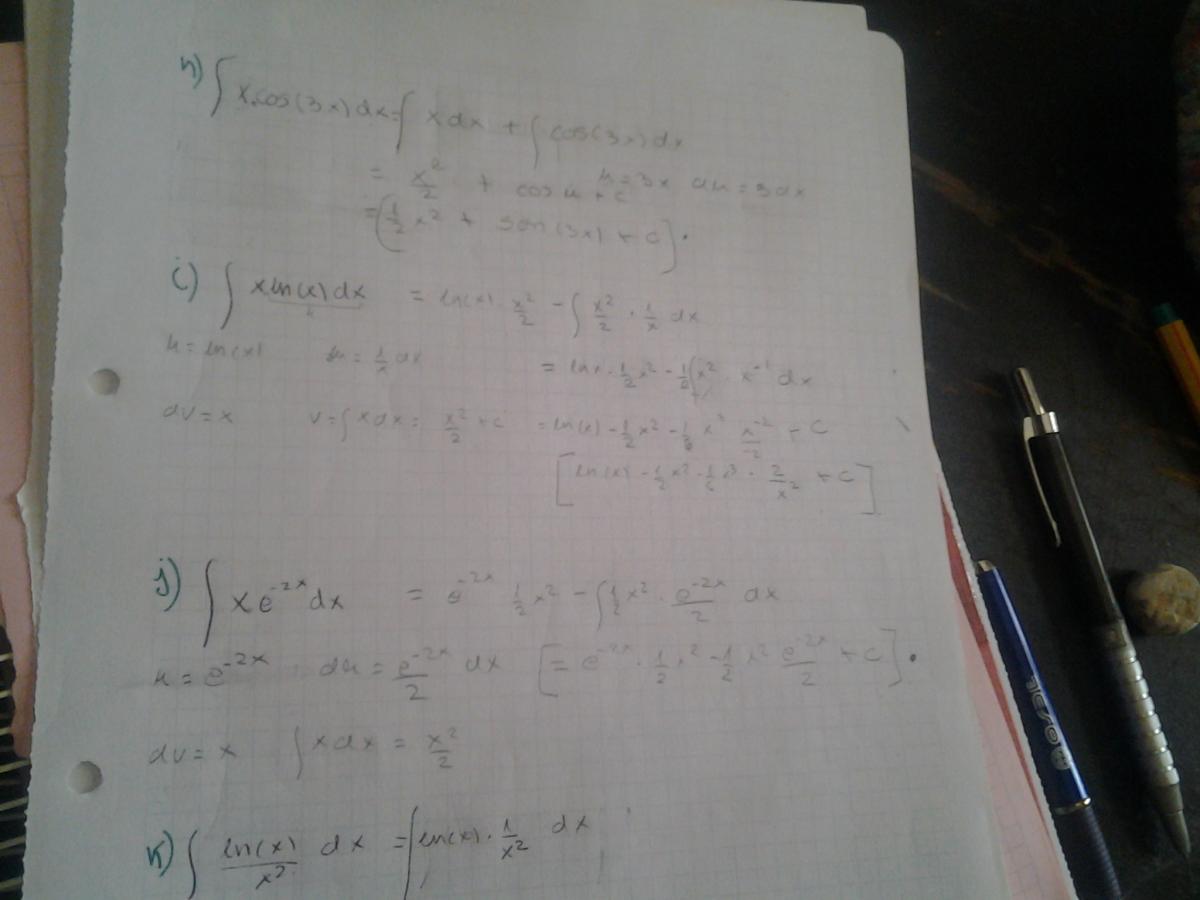 h) ∫ x.cos(3x) dx = ∫ x dx + ∫ cos(3x) dx
= x²/2 + cos u + c u = 3x du = 3dx
= [1/2 x² + sen(3x) + c].
i) ∫ x ln(x) dx = ln(x) · x²/2 - ∫ x²/2 · 1/x dx
u = ln(x) du = 1/x dx = lnx · 1/2 x² - 1/2 ∫ x² · x⁻¹ dx
dv = x v = ∫ x dx = x²/2 + c = ln(x) - 1/2 x² - x⁻²/-2 + c
[ln(x) - 1/2 x² - · 2/x² + c]
j) ∫ x e⁻²ˣ dx = e⁻²ˣ 1/2 x² - ∫ 1/2 x² · e⁻²ˣ/2 dx
u = e⁻²ˣ du = e⁻²ˣ/2 dx [= e⁻²ˣ · 1/2 x² - 1/2 x² e⁻²ˣ/2 + c].
dv = x ∫ x dx = x²/2
k) ∫ ln(x)/x² dx = ∫ ln(x) · 1/x² dx